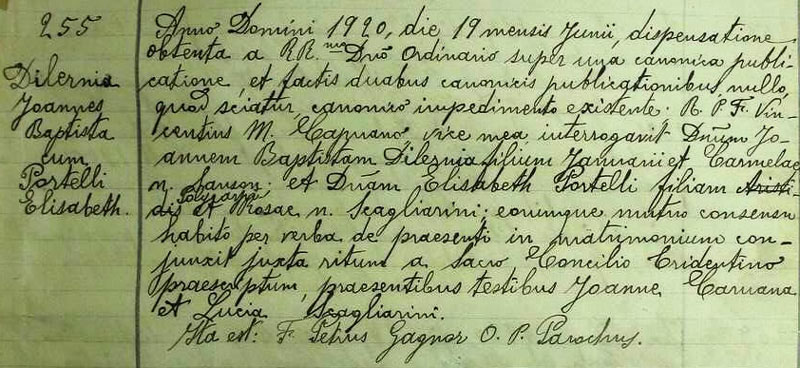 255
Dilernia
Joannes
Baptista
cum
Portelli
Elisabeth.
Anno Domini 1920, die 19 mensis Junii, dispensatione
obtenta a RR.mo Dno Ordinario super una canonica publi-
catione, et factis duabus canonicis publicationibus, nullo,
quod sciatur canonico impedimento existente; R. P. F. Vin-
centius M. Capuano vice mea interrogavit Dnum Jo-
annem Baptistam Dilernia filium Januarii et Carmelae
n. Sanson; et Dnam Elisabeth Portelli filiam Aristi-
dis et Rosae n. Scagliarini; eorumque mutuo consensu
habito per verba de praesenti in matrimonium con-
junxit juxta ritum a Sacro Concilio Tridentino
praescriptum, praesentibus testibus Joanne Caruana
et Lucia Scagliarini.
Ita est: F. Petrus Gagnor O. P. Parochus.